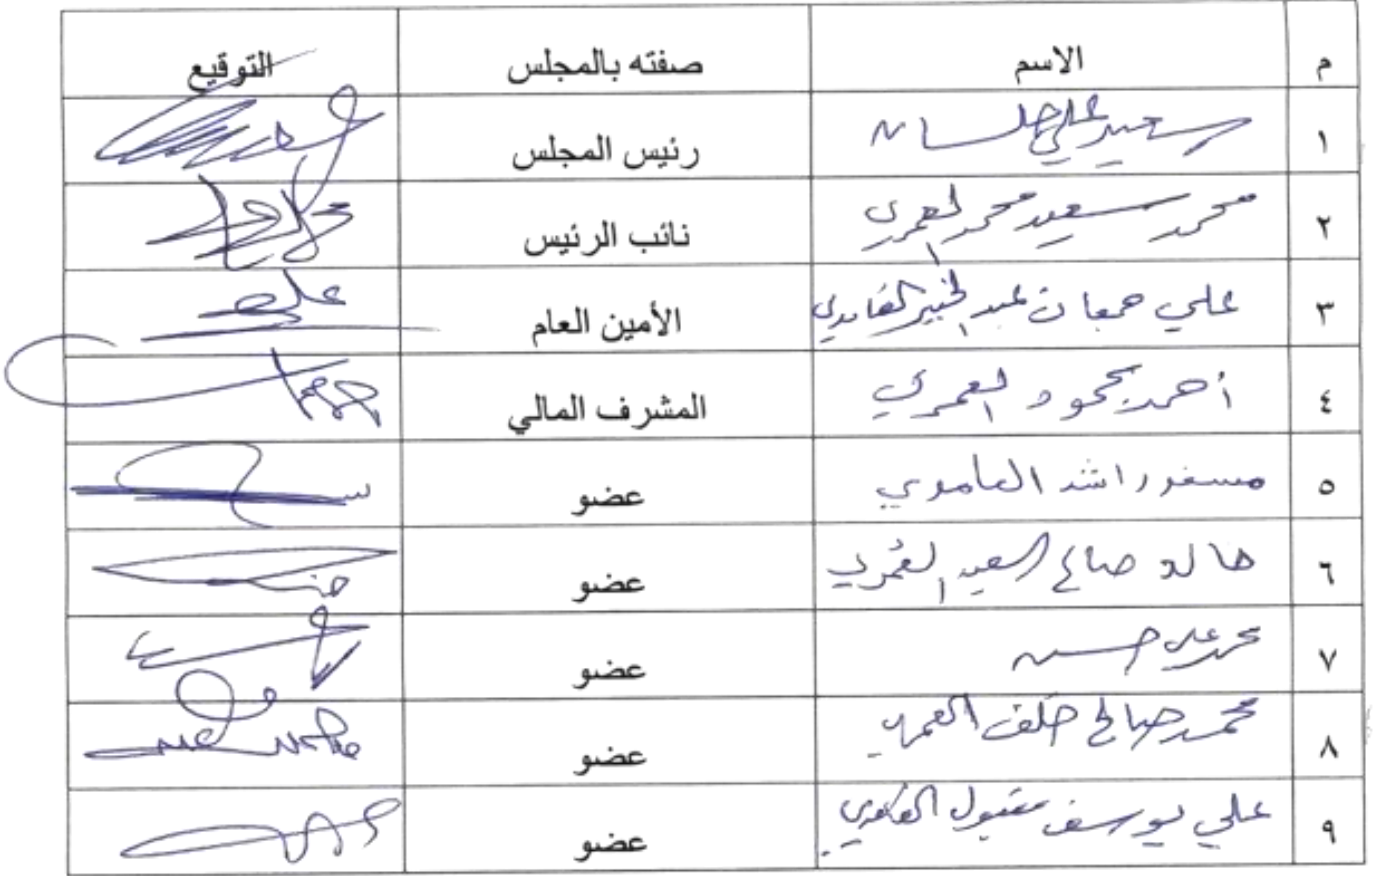 م الاسم صفته بالمجلس التوقيع
١ سعيد علي رئيس المجلس
٢ محمد سعيد محمد العمري نائب الرئيس
٣ علي جمعان عبد الخير الغامدي الأمين العام
٤ أحمد محمود العمري المشرف المالي
٥ مسفر راشد الغامدي عضو
٦ خالد صالح السعيد العمري عضو
٧ محمد علي حسن عضو
٨ محمد صالح خلف العمري عضو
٩ علي يوسف مقبول الغامدي عضو